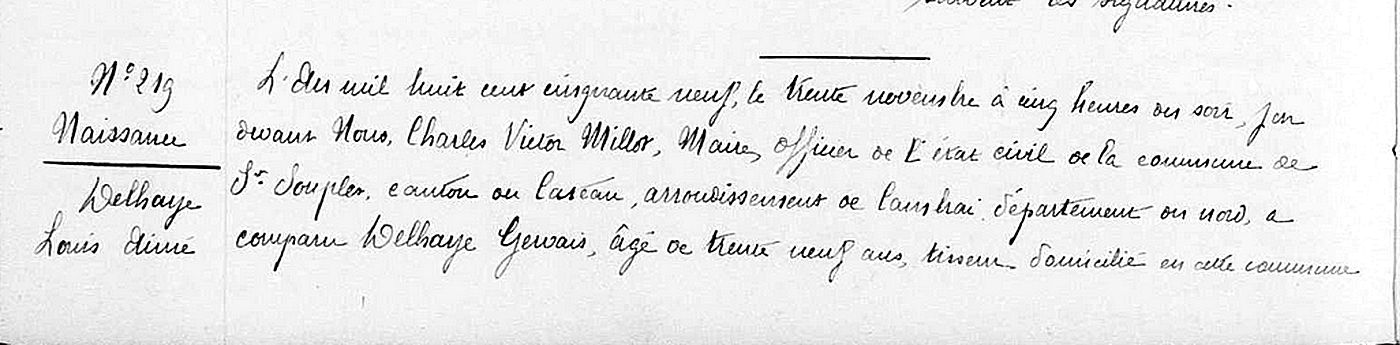 suivent les signatures.
N° 219
Naissance
Delhaye
Louis Aimé
L'An mil huit cent cinquante neuf, le trente novembre à cinq heures du soir, par
devant Nous, Charles Victor Millot, Maire, officier de l'état civil de la commune de
St Souplet, canton du Catéau, arrondissement de Cambrai, département du nord, a
comparu Delhaye Gervais, âgé de trente neuf ans, tisseur domicilié en cette commune